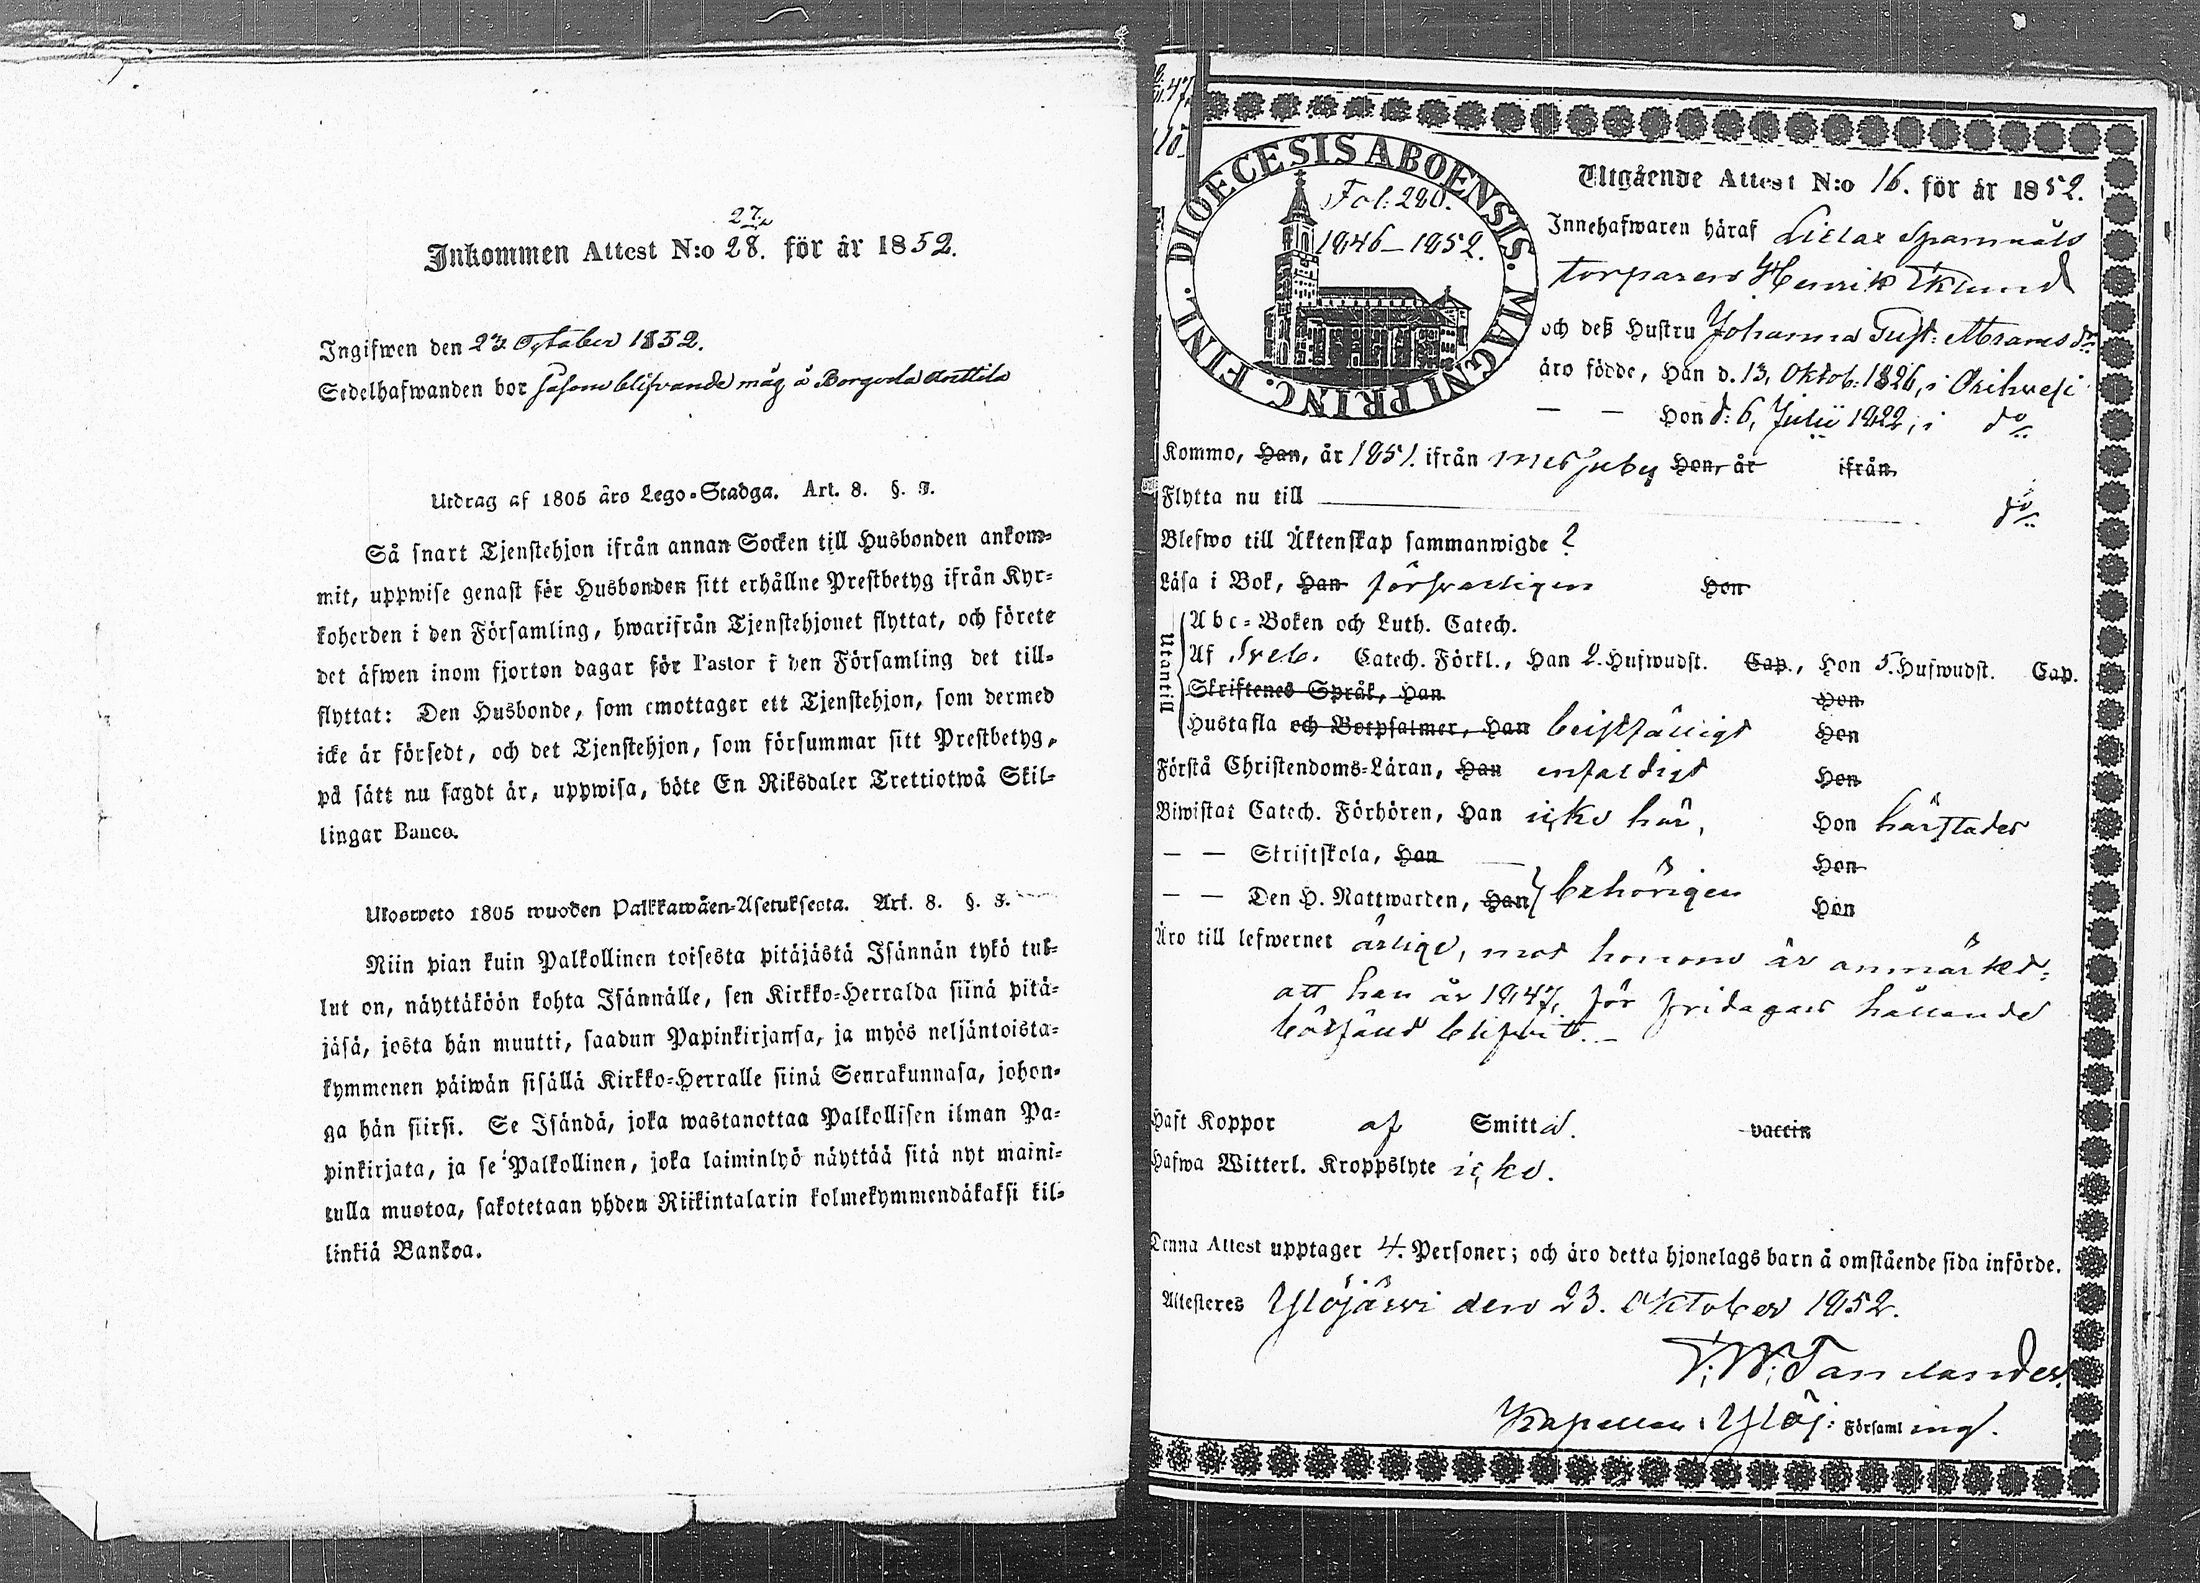 27.
Inkommen Attest N:o 28. för år 1852.
Ingifwen den 23 October 1852.
Sedelhafwanden bor såsom blifvande måg å Borgvola Anttila
Utdrag af 1805 års Lego-Stadga. Art. 8. §. 3.
Så snart Tjenstehjon ifrån annan Socken till Husbonden ankom-
mit, uppwise genast för Husbonden sitt erhållne Prestbetyg ifrån Kyr-
koherden i den Församling, hwarifrån Tjenstehjonet flyttat, och förete
det äfwen inom fjorton dagar för Pastor i den Församling det till-
flyttat: Den Husbonde, som emottager ett Tjenstehjon, som dermed
icke är försedt, och det Tjenstehjon, som försummar sitt Prestbetyg,
på sätt nu sagdt är, uppwisa, böte En Riksdaler Trettiotwå Skil-
lingar Banco.
Ulosweto 1805 wuoden Palkkawäen-Asetuksesta. Art. 8. §. 3.
Niin pian kuin Palkollinen toisesta pitäjästä Isännän tykö tul-
lut on, näyttäköön kohta Isännälle, sen Kirkko-Herralda siinä pitä-
jäsä, josta hän muutti, saadun Papinkirjansa, ja myös neljäntoista-
kymmenen päiwän sisällä Kirkko-Herralle siinä Seurakunnasa, johon-
ga hän siirsi. Se Isändä, joka wastanottaa Palkollisen ilman Pa-
pinkirjata, ja se Palkollinen, joka laiminlyö näyttää sitä nyt maini-
tulla muotoa, sakotetaan yhden Riikintalarin kolmekymmendäkaksi kil-
linkiä Bankoa.
47.
10.
DIOECESIS ABOENSIS. MAGNI PRINC. FINL.
Fol: 280.
1846–1852.
Utgående Attest N:o 16. för år 1852.
Innehafwaren häraf
torparen Henrik Eklund
och deß Hustru Johanna Gust: Abramsdr
äro födde, Han d. 13, Oktob: 1826, i Orihwesi
— — Hon d: 6, Julii 1822, i do
Kommo, Han, år 1851. ifrån Messuby Hon, år ifrån
Flytta nu till do
Blefwo till Äktenskap sammanwigde ?
Läsa i Bok, Han försvarligen Hon
Utantill
Abc-Boken och Luth. Catech.
Af Sveb. Catech. Förkl., Han 2. Hufwudst. Cap., Hon 5. Hufwudst. Cap.
Skriftenes Språk, Han Hon
Hustafla och Botpsalmer, Han bristfälligt Hon
Förstå Christendoms-Läran, Han enfaldigt Hon
Biwistat Catech. Förhören, Han icke här, Hon härstädes
— — Skriftskola, Han Hon
— — Den H. Nattwarden, Han behörigen Hon
Äro till lefwernet ärlige, mot honom är anmärkt:
att han år 1847, för fridagars hållande
bötfäld blifvit. –
Haft Koppor af Smitta. vaccin
Hafwa Witterl. Kroppslyte icke.
Denna Attest upptager 4. Personer; och äro detta hjonelags barn å omstående sida införde.
Attesteres Ylöjärvi den 23. Oktober 1852.
Kapellan i Ylöj: Församling.